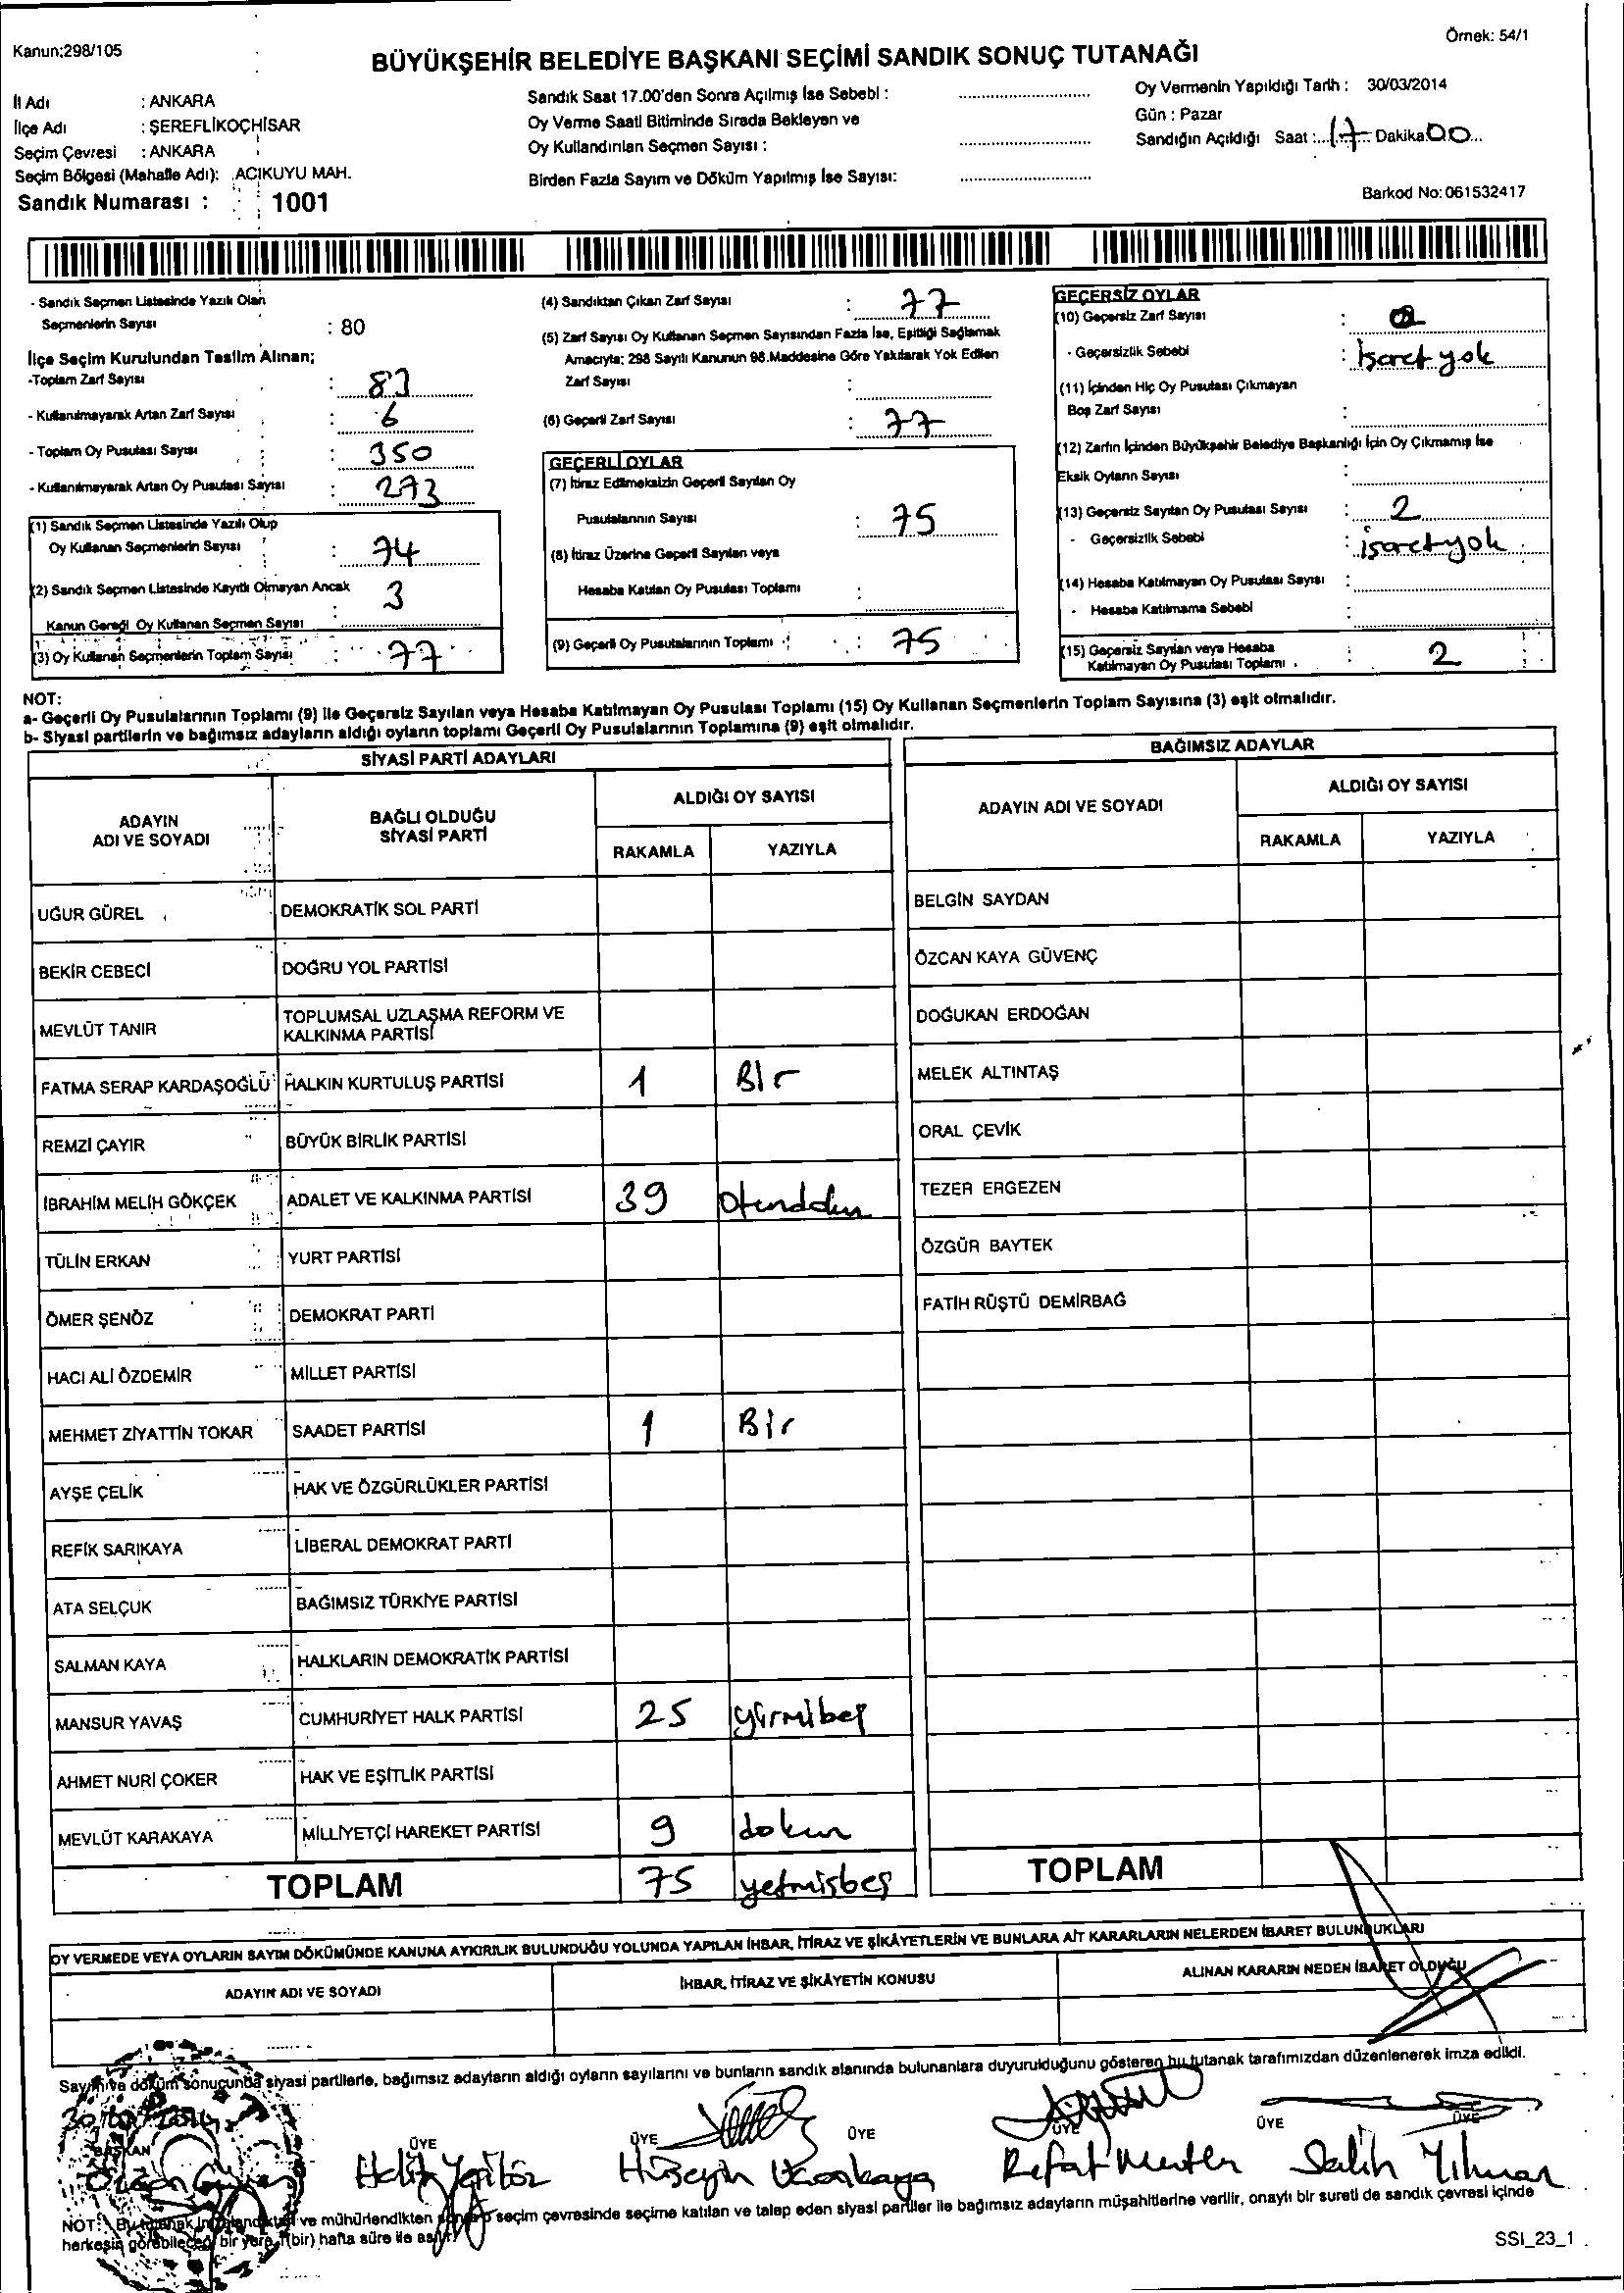 Kanun:298/105
Örnek: 54/1
BÜYÜKŞEHİR BELEDİYE BAŞKANI SEÇİMİ SANDIK SONUÇ TUTANAĞI
İl Adı : ANKARA
İlçe Adı : ŞEREFLİKOÇHİSAR
Seçim Çevresi : ANKARA
Seçim Bölgesi (Mahalle Adı): ACIKUYU MAH.
Sandık Numarası : 1001
Sandık Saat 17.00'den Sonra Açılmış İse Sebebi :
Oy Verme Saati Bitiminde Sırada Bekleyen ve
Oy Kullandırılan Seçmen Sayısı :
Birden Fazla Sayım ve Döküm Yapılmış İse Sayısı:
Oy Vermenin Yapıldığı Tarih : 30/03/2014
Gün : Pazar
Sandığın Açıldığı Saat : 17 Dakika 00
Barkod No: 061532417
- Sandık Seçmen Listesinde Yazılı Olan
Seçmenlerin Sayısı : 80
İlçe Seçim Kurulundan Teslim Alınan;
-Toplam Zarf Sayısı : 83
- Kullanılmayarak Artan Zarf Sayısı : 6
- Toplam Oy Pusulası Sayısı : 350
- Kullanılmayarak Artan Oy Pusulası Sayısı : 273
(1) Sandık Seçmen Listesinde Yazılı Olup
Oy Kullanan Seçmenlerin Sayısı : 74
(2) Sandık Seçmen Listesinde Kayıtlı Olmayan Ancak
Kanun Gereği Oy Kullanan Seçmen Sayısı : 3
(3) Oy Kullanan Seçmenlerin Toplam Sayısı : 77
(4) Sandıktan Çıkan Zarf Sayısı : 77
(5) Zarf Sayısı Oy Kullanan Seçmen Sayısından Fazla İse, Eşitliği Sağlamak
Amacıyla; 298 Sayılı Kanunun 98.Maddesine Göre Yakılarak Yok Edilen
Zarf Sayısı :
(6) Geçerli Zarf Sayısı : 77
GEÇERLİ OYLAR
(7) İtiraz Edilmeksizin Geçerli Sayılan Oy
Pusulalarının Sayısı : 75
(8) İtiraz Üzerine Geçerli Sayılan veya
Hesaba Katılan Oy Pusulası Toplamı :
(9) Geçerli Oy Pusulalarının Toplamı : 75
GEÇERSİZ OYLAR
(10) Geçersiz Zarf Sayısı :
- Geçersizlik Sebebi : İşaret yok
(11) İçinden Hiç Oy Pusulası Çıkmayan
Boş Zarf Sayısı :
(12) Zarfın İçinden Büyükşehir Belediye Başkanlığı İçin Oy Çıkmamış İse
Eksik Oyların Sayısı :
(13) Geçersiz Sayılan Oy Pusulası Sayısı : 2
- Geçersizlik Sebebi : işaret yok
(14) Hesaba Katılmayan Oy Pusulası Sayısı :
- Hesaba Katılmama Sebebi :
(15) Geçersiz Sayılan veya Hesaba
Katılmayan Oy Pusulası Toplamı : 2
NOT:
a- Geçerli Oy Pusulalarının Toplamı (9) ile Geçersiz Sayılan veya Hesaba Katılmayan Oy Pusulası Toplamı (15) Oy Kullanan Seçmenlerin Toplam Sayısına (3) eşit olmalıdır.
b- Siyasi partilerin ve bağımsız adayların aldığı oyların toplamı Geçerli Oy Pusulalarının Toplamına (9) eşit olmalıdır.
SİYASİ PARTİ ADAYLARI
ADAYIN
ADI VE SOYADI
BAĞLI OLDUĞU
SİYASİ PARTİ
ALDIĞI OY SAYISI
RAKAMLA YAZIYLA
UĞUR GÜREL DEMOKRATİK SOL PARTİ
BEKİR CEBECİ DOĞRU YOL PARTİSİ
MEVLÜT TANIR TOPLUMSAL UZLAŞMA REFORM VE
KALKINMA PARTİSİ
FATMA SERAP KARDAŞOĞLU HALKIN KURTULUŞ PARTİSİ 1 Bir
REMZİ ÇAYIR BÜYÜK BİRLİK PARTİSİ
İBRAHİM MELİH GÖKÇEK ADALET VE KALKINMA PARTİSİ 39
TÜLİN ERKAN YURT PARTİSİ
ÖMER ŞENÖZ DEMOKRAT PARTİ
HACI ALİ ÖZDEMİR MİLLET PARTİSİ
MEHMET ZİYATTİN TOKAR SAADET PARTİSİ 1 Bir
AYŞE ÇELİK HAK VE ÖZGÜRLÜKLER PARTİSİ
REFİK SARIKAYA LİBERAL DEMOKRAT PARTİ
ATA SELÇUK BAĞIMSIZ TÜRKİYE PARTİSİ
SALMAN KAYA HALKLARIN DEMOKRATİK PARTİSİ
MANSUR YAVAŞ CUMHURİYET HALK PARTİSİ 25 yirmibeş
AHMET NURİ ÇOKER HAK VE EŞİTLİK PARTİSİ
MEVLÜT KARAKAYA MİLLİYETÇİ HAREKET PARTİSİ 9 dokuz
TOPLAM 75 yetmişbeş
BAĞIMSIZ ADAYLAR
ADAYIN ADI VE SOYADI
ALDIĞI OY SAYISI
RAKAMLA YAZIYLA
BELGİN SAYDAN
ÖZCAN KAYA GÜVENÇ
DOĞUKAN ERDOĞAN
MELEK ALTINTAŞ
ORAL ÇEVİK
TEZER ERGEZEN
ÖZGÜR BAYTEK
FATİH RÜŞTÜ DEMİRBAĞ
TOPLAM
OY VERMEDE VEYA OYLARIN SAYIM DÖKÜMÜNDE KANUNA AYKIRILIK BULUNDUĞU YOLUNDA YAPILAN İHBAR, İTİRAZ VE ŞİKÂYETLERİN VE BUNLARA AİT KARARLARIN NELERDEN İBARET BULUNDUKLARI
ADAYIN ADI VE SOYADI İHBAR, İTİRAZ VE ŞİKÂYETİN KONUSU ALINAN KARARIN NEDEN İBARET OLDUĞU
Sayım ve döküm sonucunda siyasi partilerle, bağımsız adayların aldığı oyların sayılarını ve bunların sandık alanında bulunanlara duyurulduğunu gösteren bu tutanak tarafımızdan düzenlenerek imza edildi.
BAŞKAN ÜYE ÜYE ÜYE ÜYE ÜYE ÜYE
Hüseyin Salih Yılmaz
NOT: Bu tutanak imzalandıktan ve mühürlendikten sonra o seçim çevresinde seçime katılan ve talep eden siyasi partiler ile bağımsız adayların müşahitlerine verilir, onaylı bir sureti de sandık çevresi içinde
herkesin görebileceği bir yere 1(bir) hafta süre ile asılır.
SSI_23_1